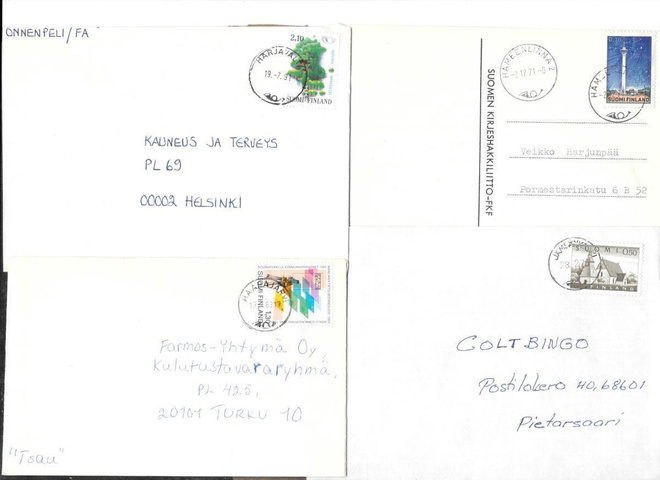 ONNENPELI/FA
2,10
HARJAVALTA
19.-7.91
SUOMI FINLAND
KAUNEUS JA TERVEYS
PL 69
00002 HELSINKI
HÄMEENLINNA 2
12.71
SUOMI FINLAND
SUOMEN KIRJESHAKKILIITTO-FKF
Veikko Harjunpää
Pormestarinkatu 6 B 52
SUOMI FINLAND
1,30
Farmos-Yhtymä Oy,
Kulutustavararyhmä,
PL 425,
20101 TURKU 10
"Tsau"
SUOMI 0,50
FINLAND
COLTBINGO
Postilokero 40, 68601
Pietarsaari